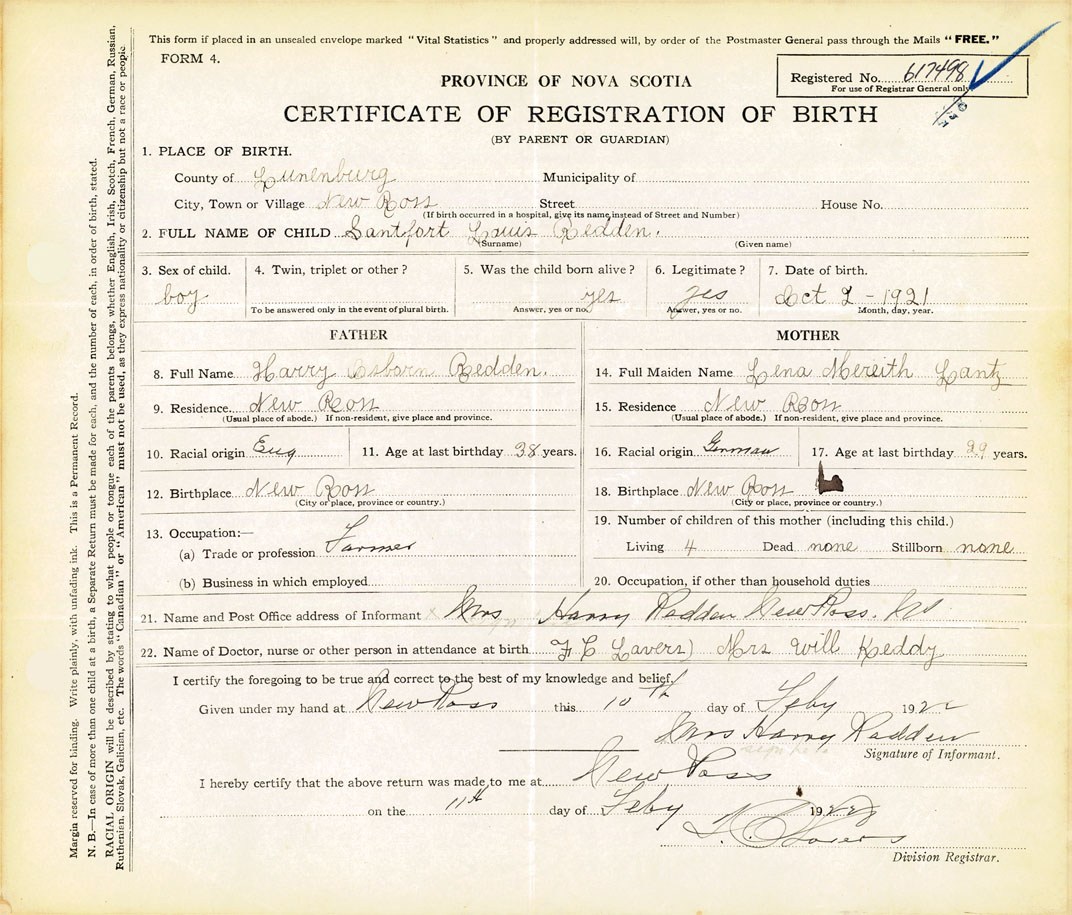 This form if placed in an unsealed envelope marked "Vital Statistics" and properly addressed will, by order of the Postmaster General pass through the Mails "FREE."
FORM 4.
Registered No. 617498
For use of Registrar General only
PROVINCE OF NOVA SCOTIA
CERTIFICATE OF REGISTRATION OF BIRTH
(BY PARENT OR GUARDIAN)
1. PLACE OF BIRTH.
County of Lunenburg Municipality of
City, Town or Village New Ross Street House No.
(If birth occurred in a hospital, give its name instead of Street and Number)
2. FULL NAME OF CHILD Santfort Louis Redden.
(Surname) (Given name)
3. Sex of child. 4. Twin, triplet or other? 5. Was the child born alive? 6. Legitimate? 7. Date of birth.
boy yes yes Oct 2 - 1921
To be answered only in the event of plural birth. Answer, yes or no. Answer, yes or no. Month, day, year.
FATHER MOTHER
8. Full Name Harry Osborn Redden. 14. Full Maiden Name Lena Mereith Lantz
9. Residence New Ross 15. Residence New Ross
(Usual place of abode.) If non-resident, give place and province. (Usual place of abode.) If non-resident, give place and province.
10. Racial origin Eng 11. Age at last birthday 38 years. 16. Racial origin German 17. Age at last birthday 29 years.
12. Birthplace New Ross 18. Birthplace New Ross
(City or place, province or country.) (City or place, province or country.)
13. Occupation:— 19. Number of children of this mother (including this child.)
(a) Trade or profession Farmer Living 4 Dead none Stillborn none
(b) Business in which employed 20. Occupation, if other than household duties
21. Name and Post Office address of Informant x Mrs Harry Redden New Ross. NS
22. Name of Doctor, nurse or other person in attendance at birth F C Lavers) Mrs Will Keddy
I certify the foregoing to be true and correct to the best of my knowledge and belief.
Given under my hand at New Ross this 10th day of Feby 1922
Mrs Harry Redden
sign here
Signature of Informant.
I hereby certify that the above return was made to me at New Ross
on the 11th day of Feby 1922
Lavers
Division Registrar.
Margin reserved for binding. Write plainly, with unfading ink. This is a Permanent Record.
N. B.—In case of more than one child at a birth, a Separate Return must be made for each, and the number of each, in order of birth, stated.
RACIAL ORIGIN will be described by stating to what people or tongue each of the parents belongs, whether English, Irish, Scotch, French, German, Russian,
Ruthenian, Slovak, Galician, etc. The words "Canadian" or "American" must not be used, as they express nationality or citizenship but not a race or people